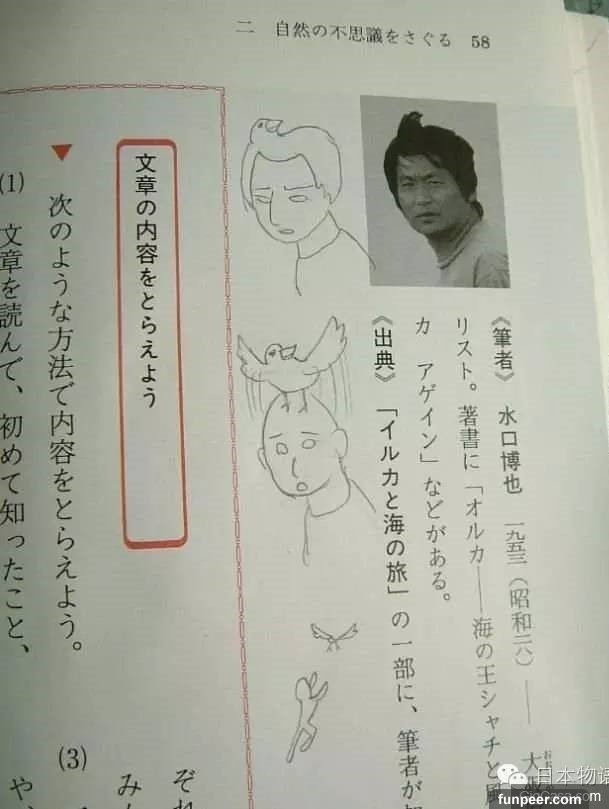 二 自然の不思議をさぐる 58
《筆者》 水口博也 一九五三(昭和二八)―― 大
リスト。著書に「オルカ――海の王シャチと
カ アゲイン」などがある。
《出典》 「イルカと海の旅」の一部に、筆者が
文章の内容をとらえよう
▼ 次のような方法で内容をとらえよう。
(1) 文章を読んで、初めて知ったこと、
(3)
ぞれ
み
や、
日本物语
funpeer.com